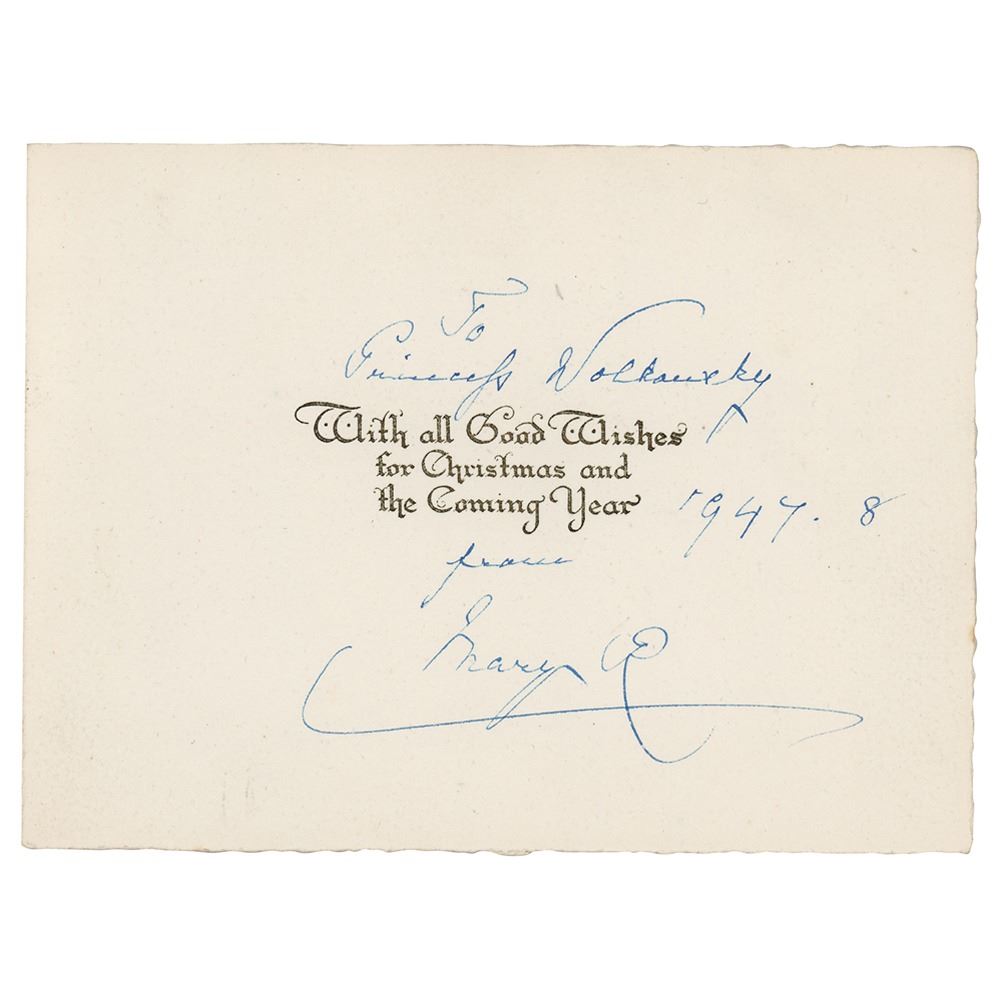 To
Princess Wolkonsky
With all Good Wishes
for Christmas and
the Coming Year
1947. 8
from
Mary R